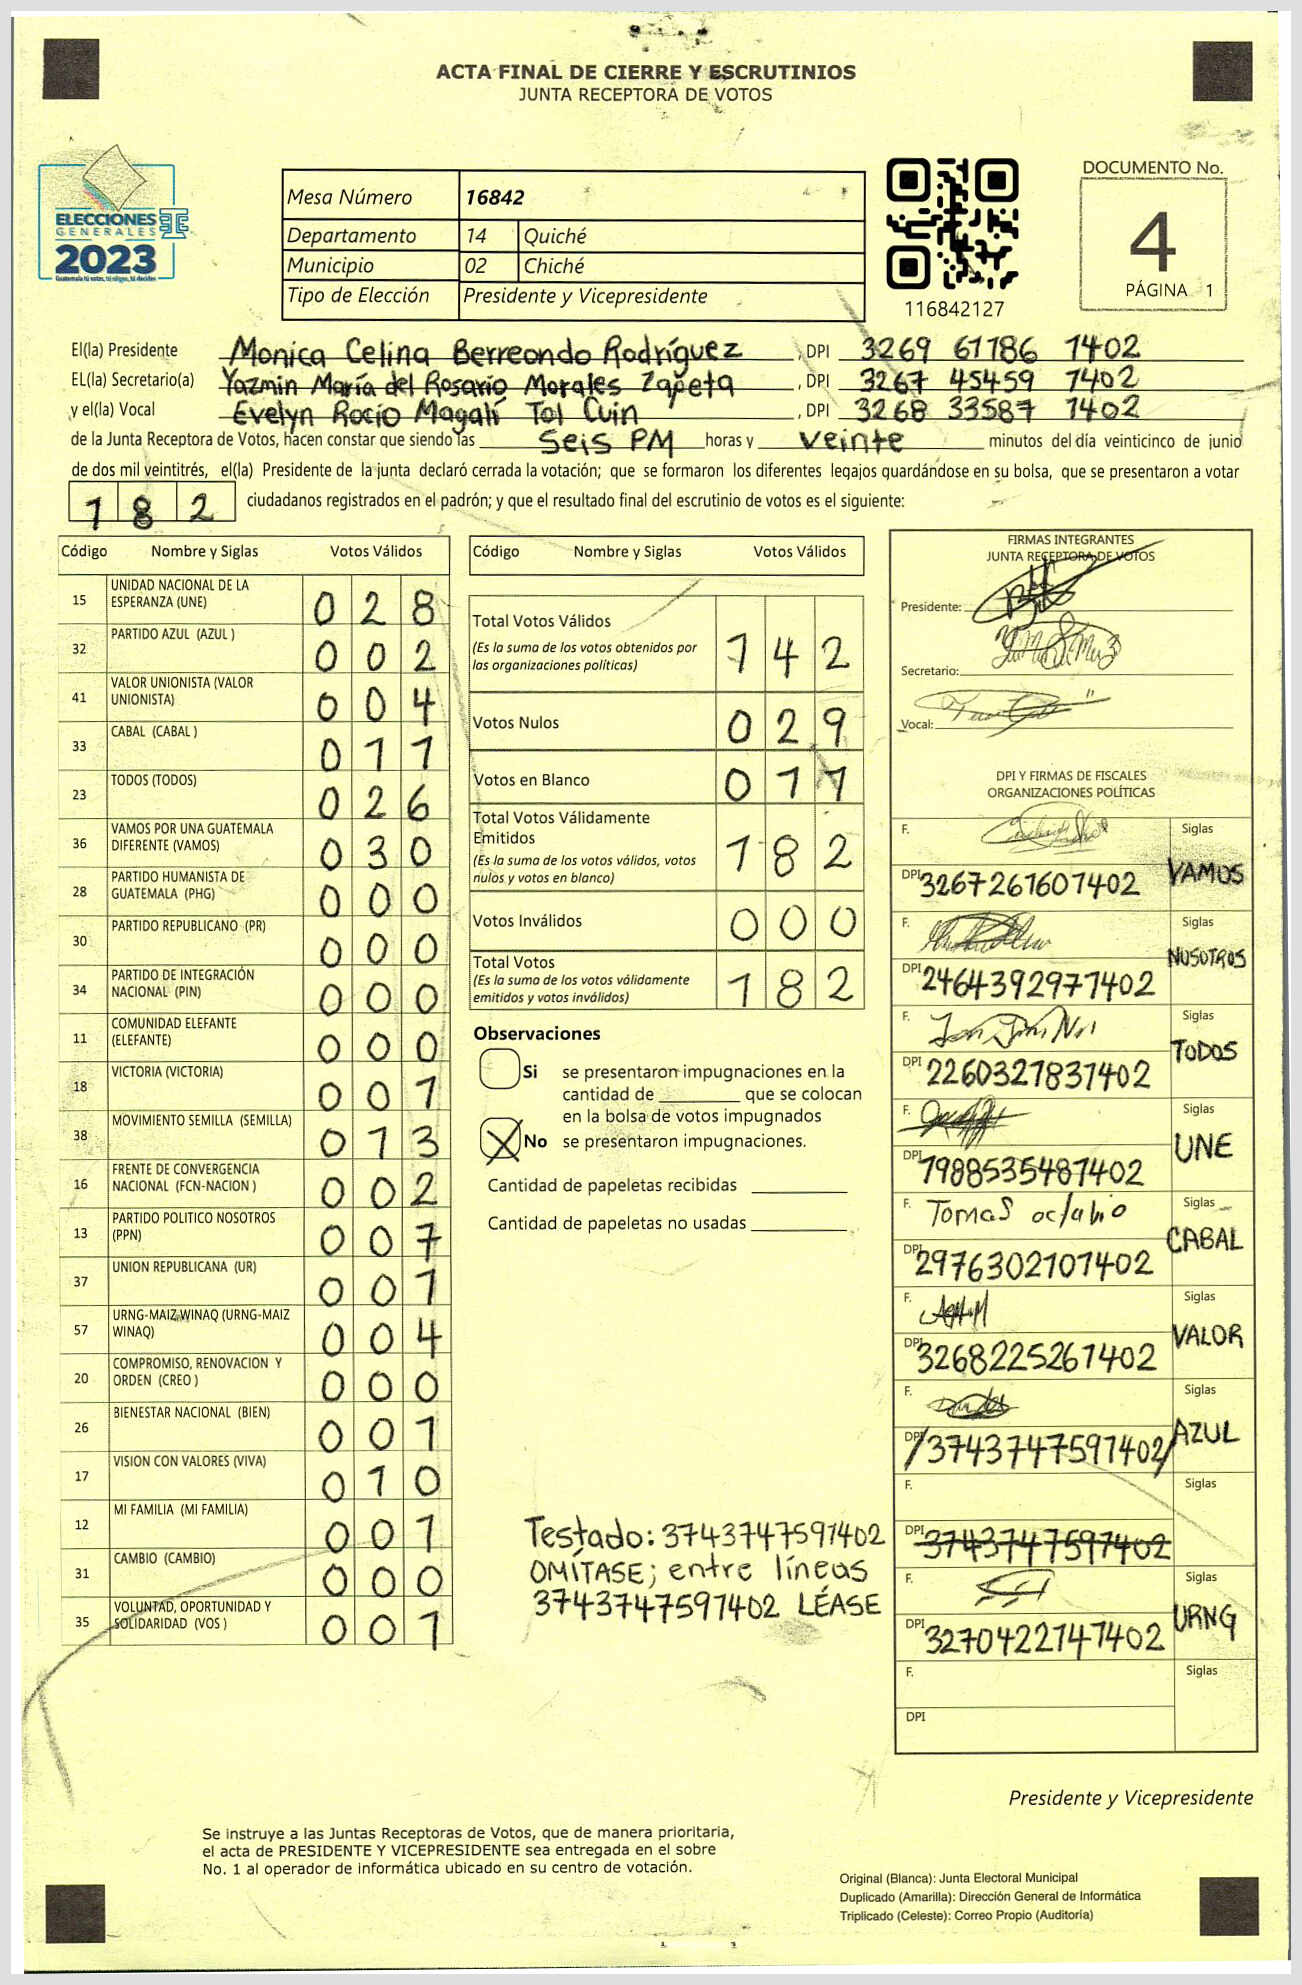 ACTA FINAL DE CIERRE Y ESCRUTINIOS
JUNTA RECEPTORA DE VOTOS
ELECCIONES
GENERALES
2023
Guatemala tú votas, tú eliges, tú decides
Mesa Número 16842
Departamento 14 Quiché
Municipio 02 Chiché
Tipo de Elección Presidente y Vicepresidente
116842127
DOCUMENTO No.
4
PÁGINA 1
El(la) Presidente Monica Celina Berreondo Rodríguez, DPI 3269 61186 1402
EL(la) Secretario(a) Yazmin María del Rosario Morales Zapeta, DPI 3267 45459 1402
y el(la) Vocal Evelyn Rocío Magalí Tol Cuin, DPI 3268 33587 1402
de la Junta Receptora de Votos, hacen constar que siendo las Seis PM horas y veinte minutos del día veinticinco de junio
de dos mil veintitrés, el(la) Presidente de la junta declaró cerrada la votación; que se formaron los diferentes legajos guardándose en su bolsa, que se presentaron a votar
182 ciudadanos registrados en el padrón; y que el resultado final del escrutinio de votos es el siguiente:
Código Nombre y Siglas Votos Válidos
15 UNIDAD NACIONAL DE LA ESPERANZA (UNE) 028
32 PARTIDO AZUL (AZUL ) 002
41 VALOR UNIONISTA (VALOR UNIONISTA) 004
33 CABAL (CABAL ) 011
23 TODOS (TODOS) 026
36 VAMOS POR UNA GUATEMALA DIFERENTE (VAMOS) 030
28 PARTIDO HUMANISTA DE GUATEMALA (PHG) 000
30 PARTIDO REPUBLICANO (PR) 000
34 PARTIDO DE INTEGRACIÓN NACIONAL (PIN) 000
11 COMUNIDAD ELEFANTE (ELEFANTE) 000
18 VICTORIA (VICTORIA) 001
38 MOVIMIENTO SEMILLA (SEMILLA) 013
16 FRENTE DE CONVERGENCIA NACIONAL (FCN-NACION ) 002
13 PARTIDO POLITICO NOSOTROS (PPN) 007
37 UNION REPUBLICANA (UR) 001
57 URNG-MAIZ WINAQ (URNG-MAIZ WINAQ) 004
20 COMPROMISO, RENOVACION Y ORDEN (CREO ) 000
26 BIENESTAR NACIONAL (BIEN) 001
17 VISION CON VALORES (VIVA) 010
12 MI FAMILIA (MI FAMILIA) 001
31 CAMBIO (CAMBIO) 000
35 VOLUNTAD, OPORTUNIDAD Y SOLIDARIDAD (VOS ) 001
Código Nombre y Siglas Votos Válidos
Total Votos Válidos 142
(Es la suma de los votos obtenidos por
las organizaciones políticas)
Votos Nulos 029
Votos en Blanco 011
Total Votos Válidamente
Emitidos 182
(Es la suma de los votos válidos, votos
nulos y votos en blanco)
Votos Inválidos 000
Total Votos 182
(Es la suma de los votos válidamente
emitidos y votos inválidos)
Observaciones
Si se presentaron impugnaciones en la
cantidad de ________ que se colocan
en la bolsa de votos impugnados
X No se presentaron impugnaciones.
Cantidad de papeletas recibidas
Cantidad de papeletas no usadas
Testado: 3743747591402
OMÍTASE; entre líneas
3743747591402 LÉASE
FIRMAS INTEGRANTES
JUNTA RECEPTORA DE VOTOS
Presidente:
Secretario:
Vocal:
DPI Y FIRMAS DE FISCALES
ORGANIZACIONES POLÍTICAS
F. Siglas
DPI 3267261601402 VAMOS
F. Siglas
DPI 2464392971402 NOSOTROS
F. Siglas
DPI 2260327831402 TODOS
F. Siglas
DPI 1988535481402 UNE
F. Tomas octabio Siglas
DPI 2976302101402 CABAL
F. Siglas
DPI 3268225261402 VALOR
F. Siglas
DPI /3743747591402/ AZUL
F. Siglas
DPI 3743747591402
F. Siglas
DPI 3270422141402 URNG
F. Siglas
DPI
Presidente y Vicepresidente
Se instruye a las Juntas Receptoras de Votos, que de manera prioritaria,
el acta de PRESIDENTE Y VICEPRESIDENTE sea entregada en el sobre
No. 1 al operador de informática ubicado en su centro de votación.
Original (Blanca): Junta Electoral Municipal
Duplicado (Amarilla): Dirección General de Informática
Triplicado (Celeste): Correo Propio (Auditoría)